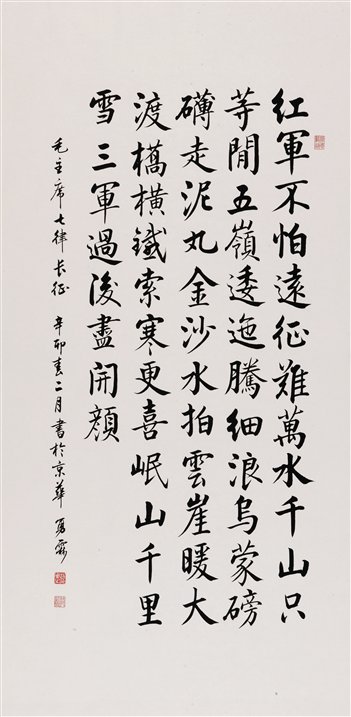 红軍不怕遠征難萬水千山只
等閒五嶺逶迤騰细浪乌蒙磅
礴走泥丸金沙水拍雲崖暖大
渡橋横鐵索寒更喜岷山千里
雪三軍過後盡開顔
毛主席七律长征 辛卯春二月書於京華